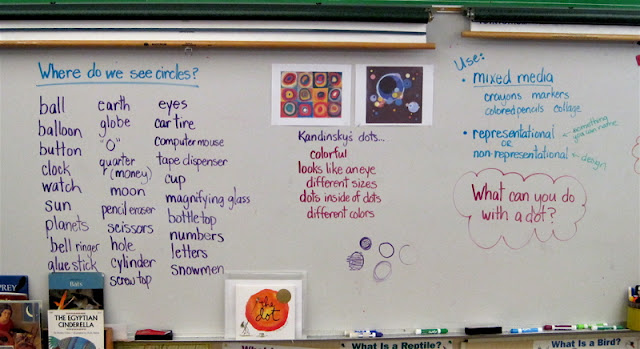 Where do we see circles?
ball
balloon
button
clock
watch
sun
planets
bell ringer
glue stick
earth
globe
"O"
quarter
(money)
moon
pencil eraser
scissors
hole
cylinder
screw top
eyes
car tire
computer mouse
tape dispenser
cup
magnifying glass
bottle top
numbers
letters
snowmen
Kandinsky's dots...
colorful
looks like an eye
different sizes
dots inside of dots
different colors
Use:
• mixed media
crayons markers
colored pencils collage
• representational
something
you can name
OR
non-representational
design
What can you do
with a dot?
PREY
Bats
THE EGYPTIAN
CINDERELLA
The
dot
What is a Reptile?
What Is a Bird?